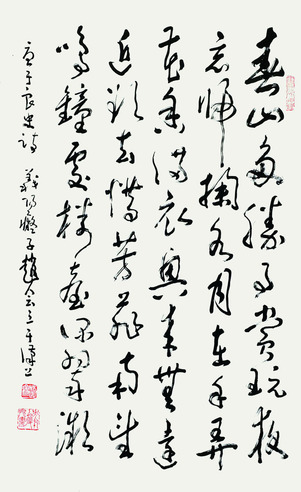 春山多勝事賞玩夜
忘歸掬水月在手弄
花香滿衣興來無遠
近欲去惜芳菲南望
鳴鐘處樓臺深翠微
唐于良史詩 義陽癡子趙